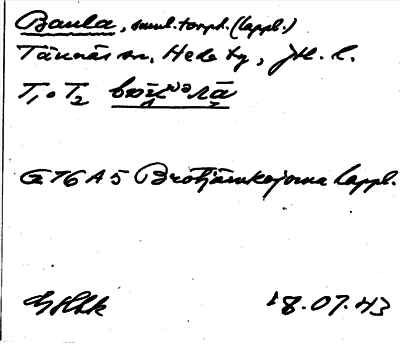 Baula, saml. torpl. (lappl.)
Tännäs sn, Hede tg, Jtl. l.
T₁ o T₂
G T6 A5 Brotjärnkojorna lappl.
18.07.43